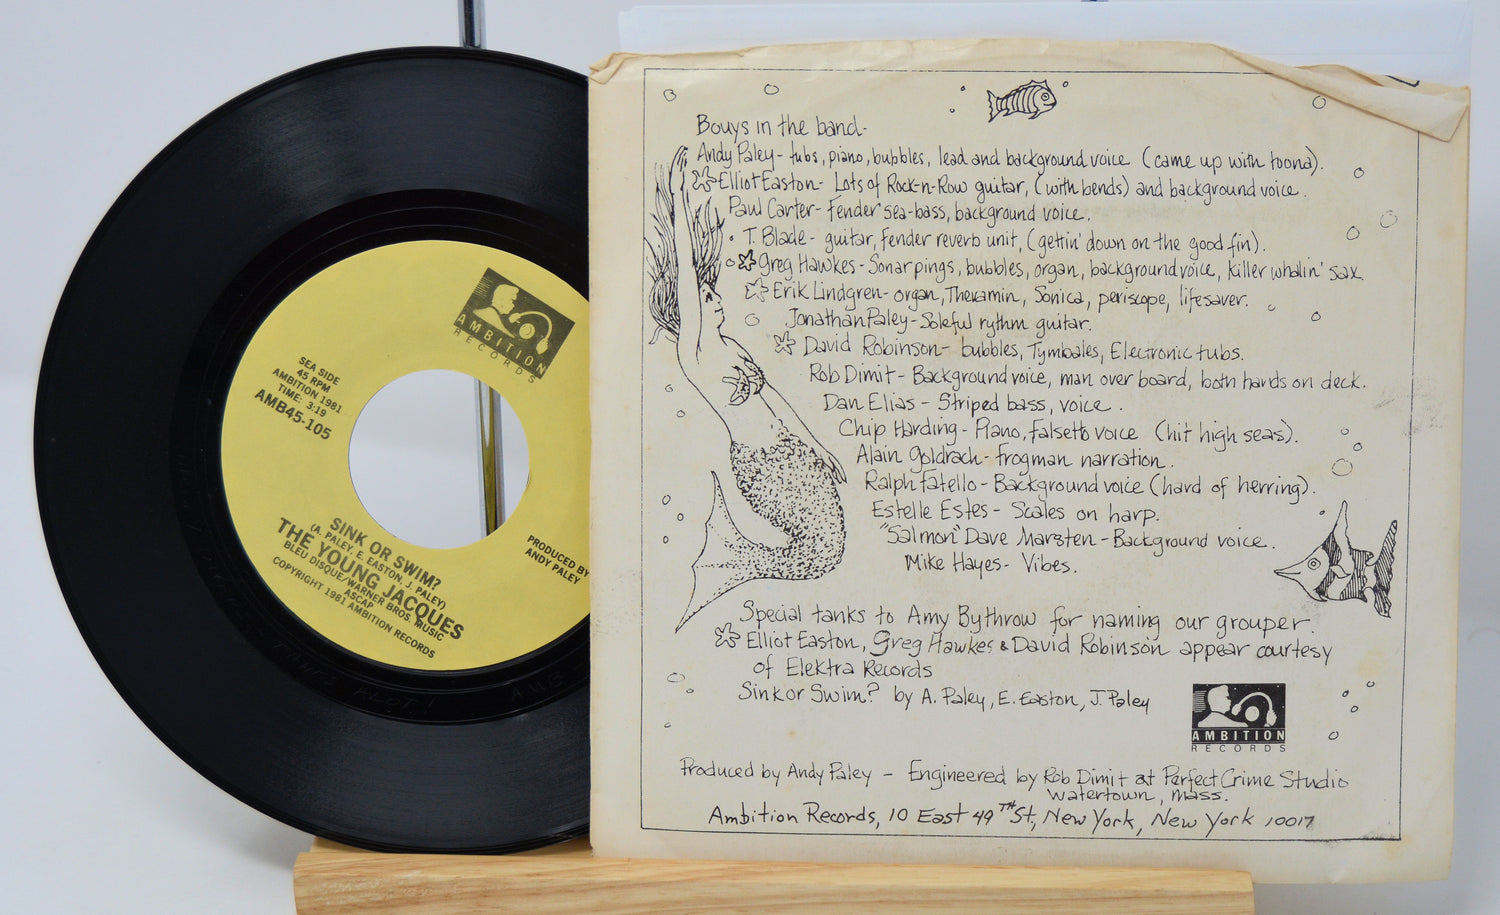 AMBITION
RECORDS
SEA SIDE
45 RPM
AMBITION 1981
TIME: 3:19
AMB45-105
PRODUCED BY
ANDY PALEY
SINK OR SWIM?
(A. PALEY, E. EASTON, J. PALEY)
THE YOUNG JACQUES
BLEU DISQUE/WARNER BROS. MUSIC
ASCAP
COPYRIGHT 1981 AMBITION RECORDS
Bouys in the band-
Andy Paley- tubs, piano, bubbles, lead and background voice (came up with toona).
Elliot Easton- Lots of Rock-n-Row guitar, (with bends) and background voice.
Paul Carter- Fender sea-bass, background voice.
T. Blade- guitar, fender reverb unit, (gettin' down on the good fin).
Greg Hawkes- Sonar pings, bubbles, organ, background voice, killer whalin' sax
Erik Lindgren- organ, Theramin, Sonica, periscope, lifesaver.
Jonathan Paley- Soleful rythm guitar.
David Robinson- bubbles, Tymbales, Electronic tubs.
Rob Dimit- Background voice, man over board, both hands on deck.
Dan Elias- Striped bass, voice.
Chip Harding- Piano, falsetto voice (hit high seas).
Alain Goldrach- frogman narration.
Ralph Fatello- Background voice (hard of herring).
Estelle Estes- Scales on harp.
"Salmon" Dave Marsten- Background voice.
Mike Hayes- Vibes.
Special tanks to Amy Bythrow for naming our grouper.
Elliot Easton, Greg Hawkes & David Robinson appear courtesy
of Elektra Records
Sink or Swim? by A. Paley, E. Easton, J. Paley
AMBITION
RECORDS
Produced by Andy Paley - Engineered by Rob Dimit at Perfect Crime Studio
Watertown, Mass.
Ambition Records, 10 East 49TH St, New York, New York 10017